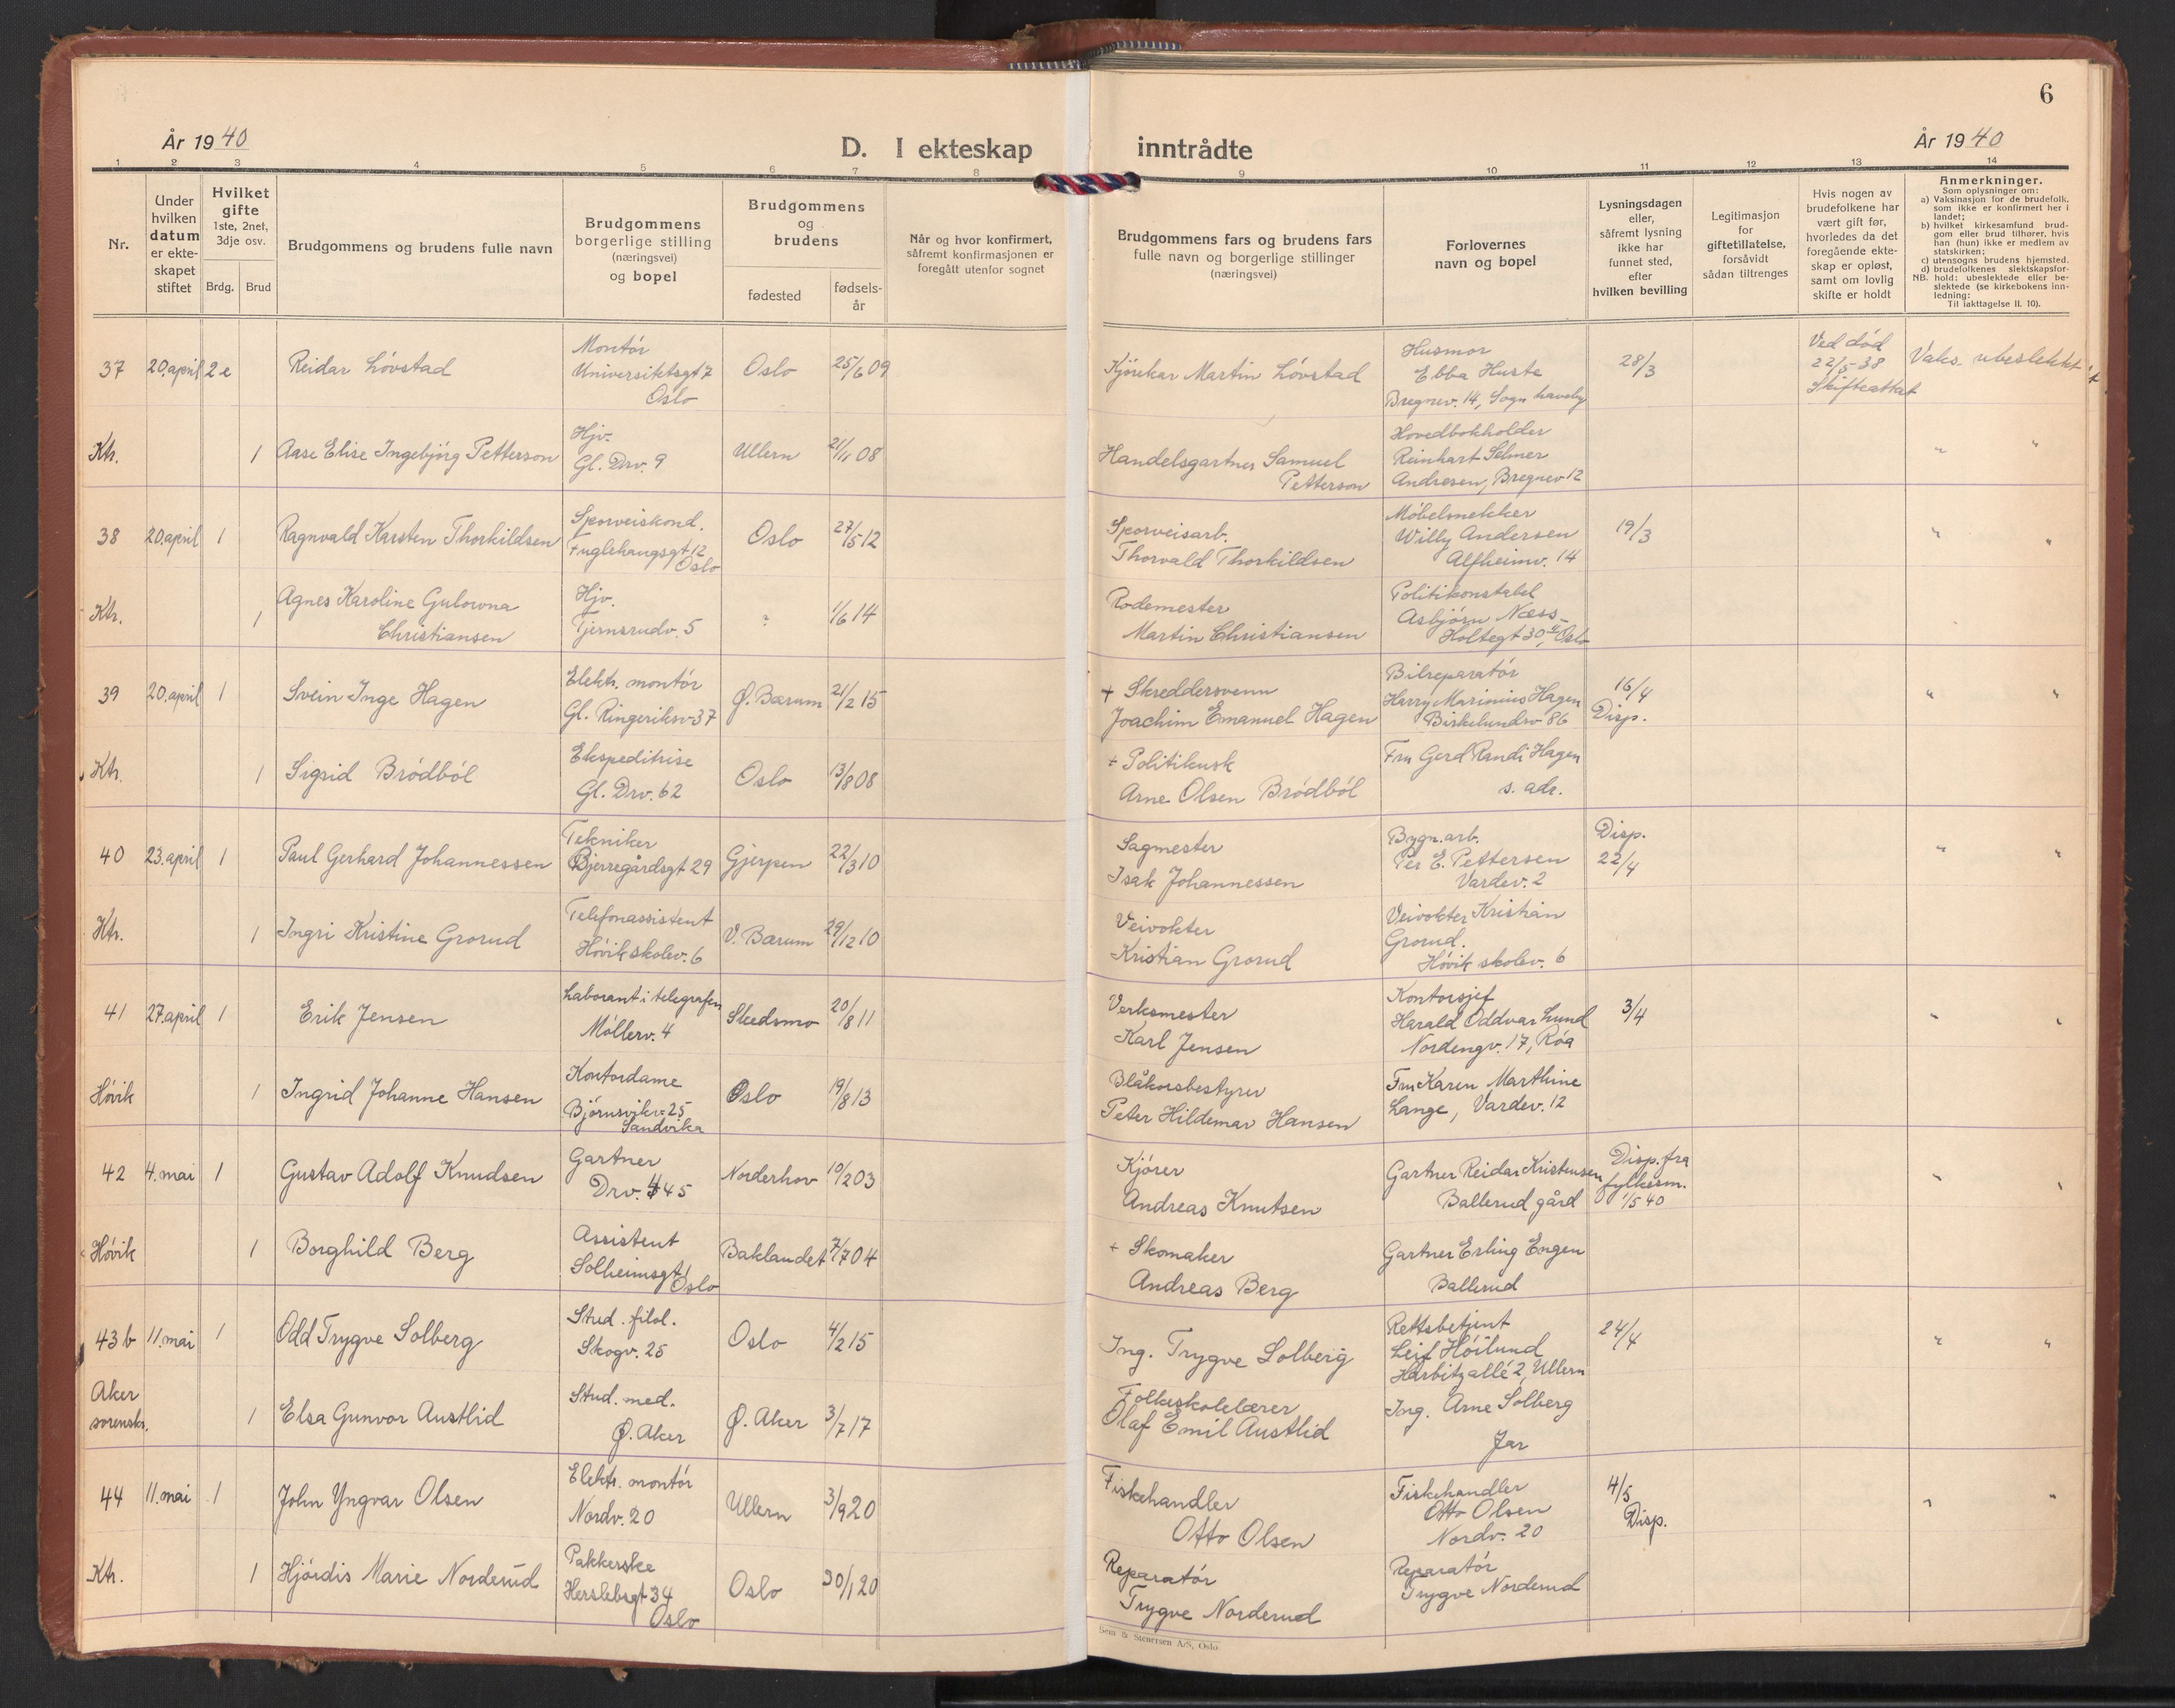 6
År 1940
D. I ekteskap inntrådte
År 1940
1 2 3 4 5 6 7 8 9 10 11 12 13 14
Nr.
Under
hvilken
datum
er ekte-
skapet
stiftet
Hvilket
gifte
1ste, 2net,
3dje osv.
Brdg. Brud
Brudgommens og brudens fulle navn
Brudgommens
borgerlige stilling
(næringsvei)
og bopel
Brudgommens
og
brudens
fødested
fødsels-
år
Når og hvor konfirmert,
såfremt konfirmasjonen er
foregått utenfor sognet
Brudgommens fars og brudens fars
fulle navn og borgerlige stillinger
(næringsvei)
Forlovernes
navn og bopel
Lysningsdagen
eller,
såfremt lysning
ikke har
funnet sted,
efter
hvilken bevilling
Legitimasjon
for
giftetillatelse,
forsåvidt
sådan tiltrenges
Hvis nogen av
brudefolkene har
vært gift før,
hvorledes da det
foregående ekte-
skap er opløst,
samt om lovlig
skifte er holdt
Anmerkninger.
Som oplysninger om:
a) Vaksinasjon for de brudefolk,
som ikke er konfirmert her i
landet;
b) hvilket kirkesamfund brud-
gom eller brud tilhører, hvis
han (hun) ikke er medlem av
statskirken;
c) utensogns brudens hjemsted.
d) brudefolkenes slektskapsfor-
NB. hold: ubeslektede eller be-
slektede (se kirkebokens inn-
ledning:
Til iakttagelse II. 10).
37 20.april 2e
Reidar Lövstad
Montör
Universitetsgt 7
Oslo
Oslo 25/6 09
Kjörekar Martin Lövstad
Husmor
Ebba Huste
Bregnev. 14, Sogn haveby
28/3
Ved död
22/5-38
Skifteattest
Vaks. ubeslektet
Ktr. 1
Aase Elise Ingebjörg Petterson
Hjv.
Gl. Drv. 9
Ullern 21/11 08
Handelsgartner Samuel
Petterson
Hovedbokholder
Reinhart Selmer
Andresen, Bregnev 12
" "
38 20.april 1
Ragnvald Karsten Thorkildsen
Sporveiskond.
Fuglehaugsgt 12
Oslo
Oslo 27/5 12
Sporveisarb.
Thorvald Thorkildsen
Möbelsnekker
Willy Andersen
Alfheimv. 14
19/3
" "
Ktr. 1
Agnes Karoline Gulovna
Christiansen
Hjv.
Tjernsrudv. 5
" 1/6 14
Rodemester
Martin Christiansen
Politikonstabel
Asbjörn Næss
Holtegt 30, Oslo
39 20.april 1
Svein Inge Hagen
Elektr. montör
Gl. Ringeriksv 37
Ø. Bærum 21/2 15
+ Skreddersvenn
Joachim Emanuel Hagen
Bilreparatör
Harry Marinius Hagen
Birkelundsv 86
16/4
Disp.
" "
Ktr. 1
Sigrid Brödböl
Ekspeditrise
Gl. Drv. 62
Oslo 13/8 08
+ Politikusk
Arne Olsen Brödböl
Fru Gerd Randi Hagen
s. adr.
40 23.april 1
Paul Gerhard Johannessen
Tekniker
Bjerregårdsgt 29
Gjerpen 22/3 10
Sagmester
Isak Johannessen
Bygn.arb.
Per E. Pettersen
Vardev. 2
Disp.
22/4
" "
Ktr. 1
Ingri Kristine Grorud
Telefonassistent
Høvik skolev. 6
V. Bærum 29/12 10
Veivokter
Kristian Grorud
Veivokter Kristian
Grorud.
Høvik skolev. 6
41 27.april 1
Erik Jensen
Laborant i telegrafen
Möllerv. 4
Skedsmo 20/8 11
Verksmester
Karl Jensen
Kontorsjef
Harald Oddvar Lund
Nordengv. 17, Röa
3/4
" "
Høvik 1
Ingrid Johanne Hansen
Kontordame
Björnsvikv 25
Sandvika
Oslo 19/8 13
Blåkorsbestyrer
Peter Hildemar Hansen
Fru Karen Marthine
Lange, Vardev. 12
42 4. mai 1
Gustav Adolf Knudsen
Gartner
Drv. 445
Norderhov 10/2 03
Kjörer
Andreas Knutsen
Gartner Reidar Kristensen
Ballerud gård
Disp. fra
fylkesm.
1/5 40
" "
Høvik 1
Borghild Berg
Assistent
Solheimsgt 1
Oslo
Baklandet 7/7 04
+ Skomaker
Andreas Berg
Gartner Erling Engen
Ballerud
43 b 11. mai 1
Odd Trygve Solberg
Stud. filol.
Skogv. 25
Oslo 4/2 15
Ing. Trygve Solberg
Rettsbetjent
Leif Höilund
Harbitzallé 2, Ullern
24/4
" "
Aker
sorenskr. 1
Elsa Gunvor Austlid
Stud. med.
Ø. Aker
Ø. Aker 3/7 17
Folkeskolelærer
Olaf Emil Austlid
Ing. Arne Solberg
Jar
44 11. mai 1
John Yngvar Olsen
Elektr. montör
Nordv. 20
Ullern 3/9 20
Fiskehandler
Otto Olsen
Fiskehandler
Otto Olsen
Nordv. 20
4/5
Disp.
" "
Ktr. 1
Hjördis Marie Norderud
Pakkerske
Herslebsgt 34
Oslo
Oslo 30/1 20
Reparatör
Trygve Norderud
Reparatör
Trygve Norderud
Sem & Stenersen A/S, Oslo